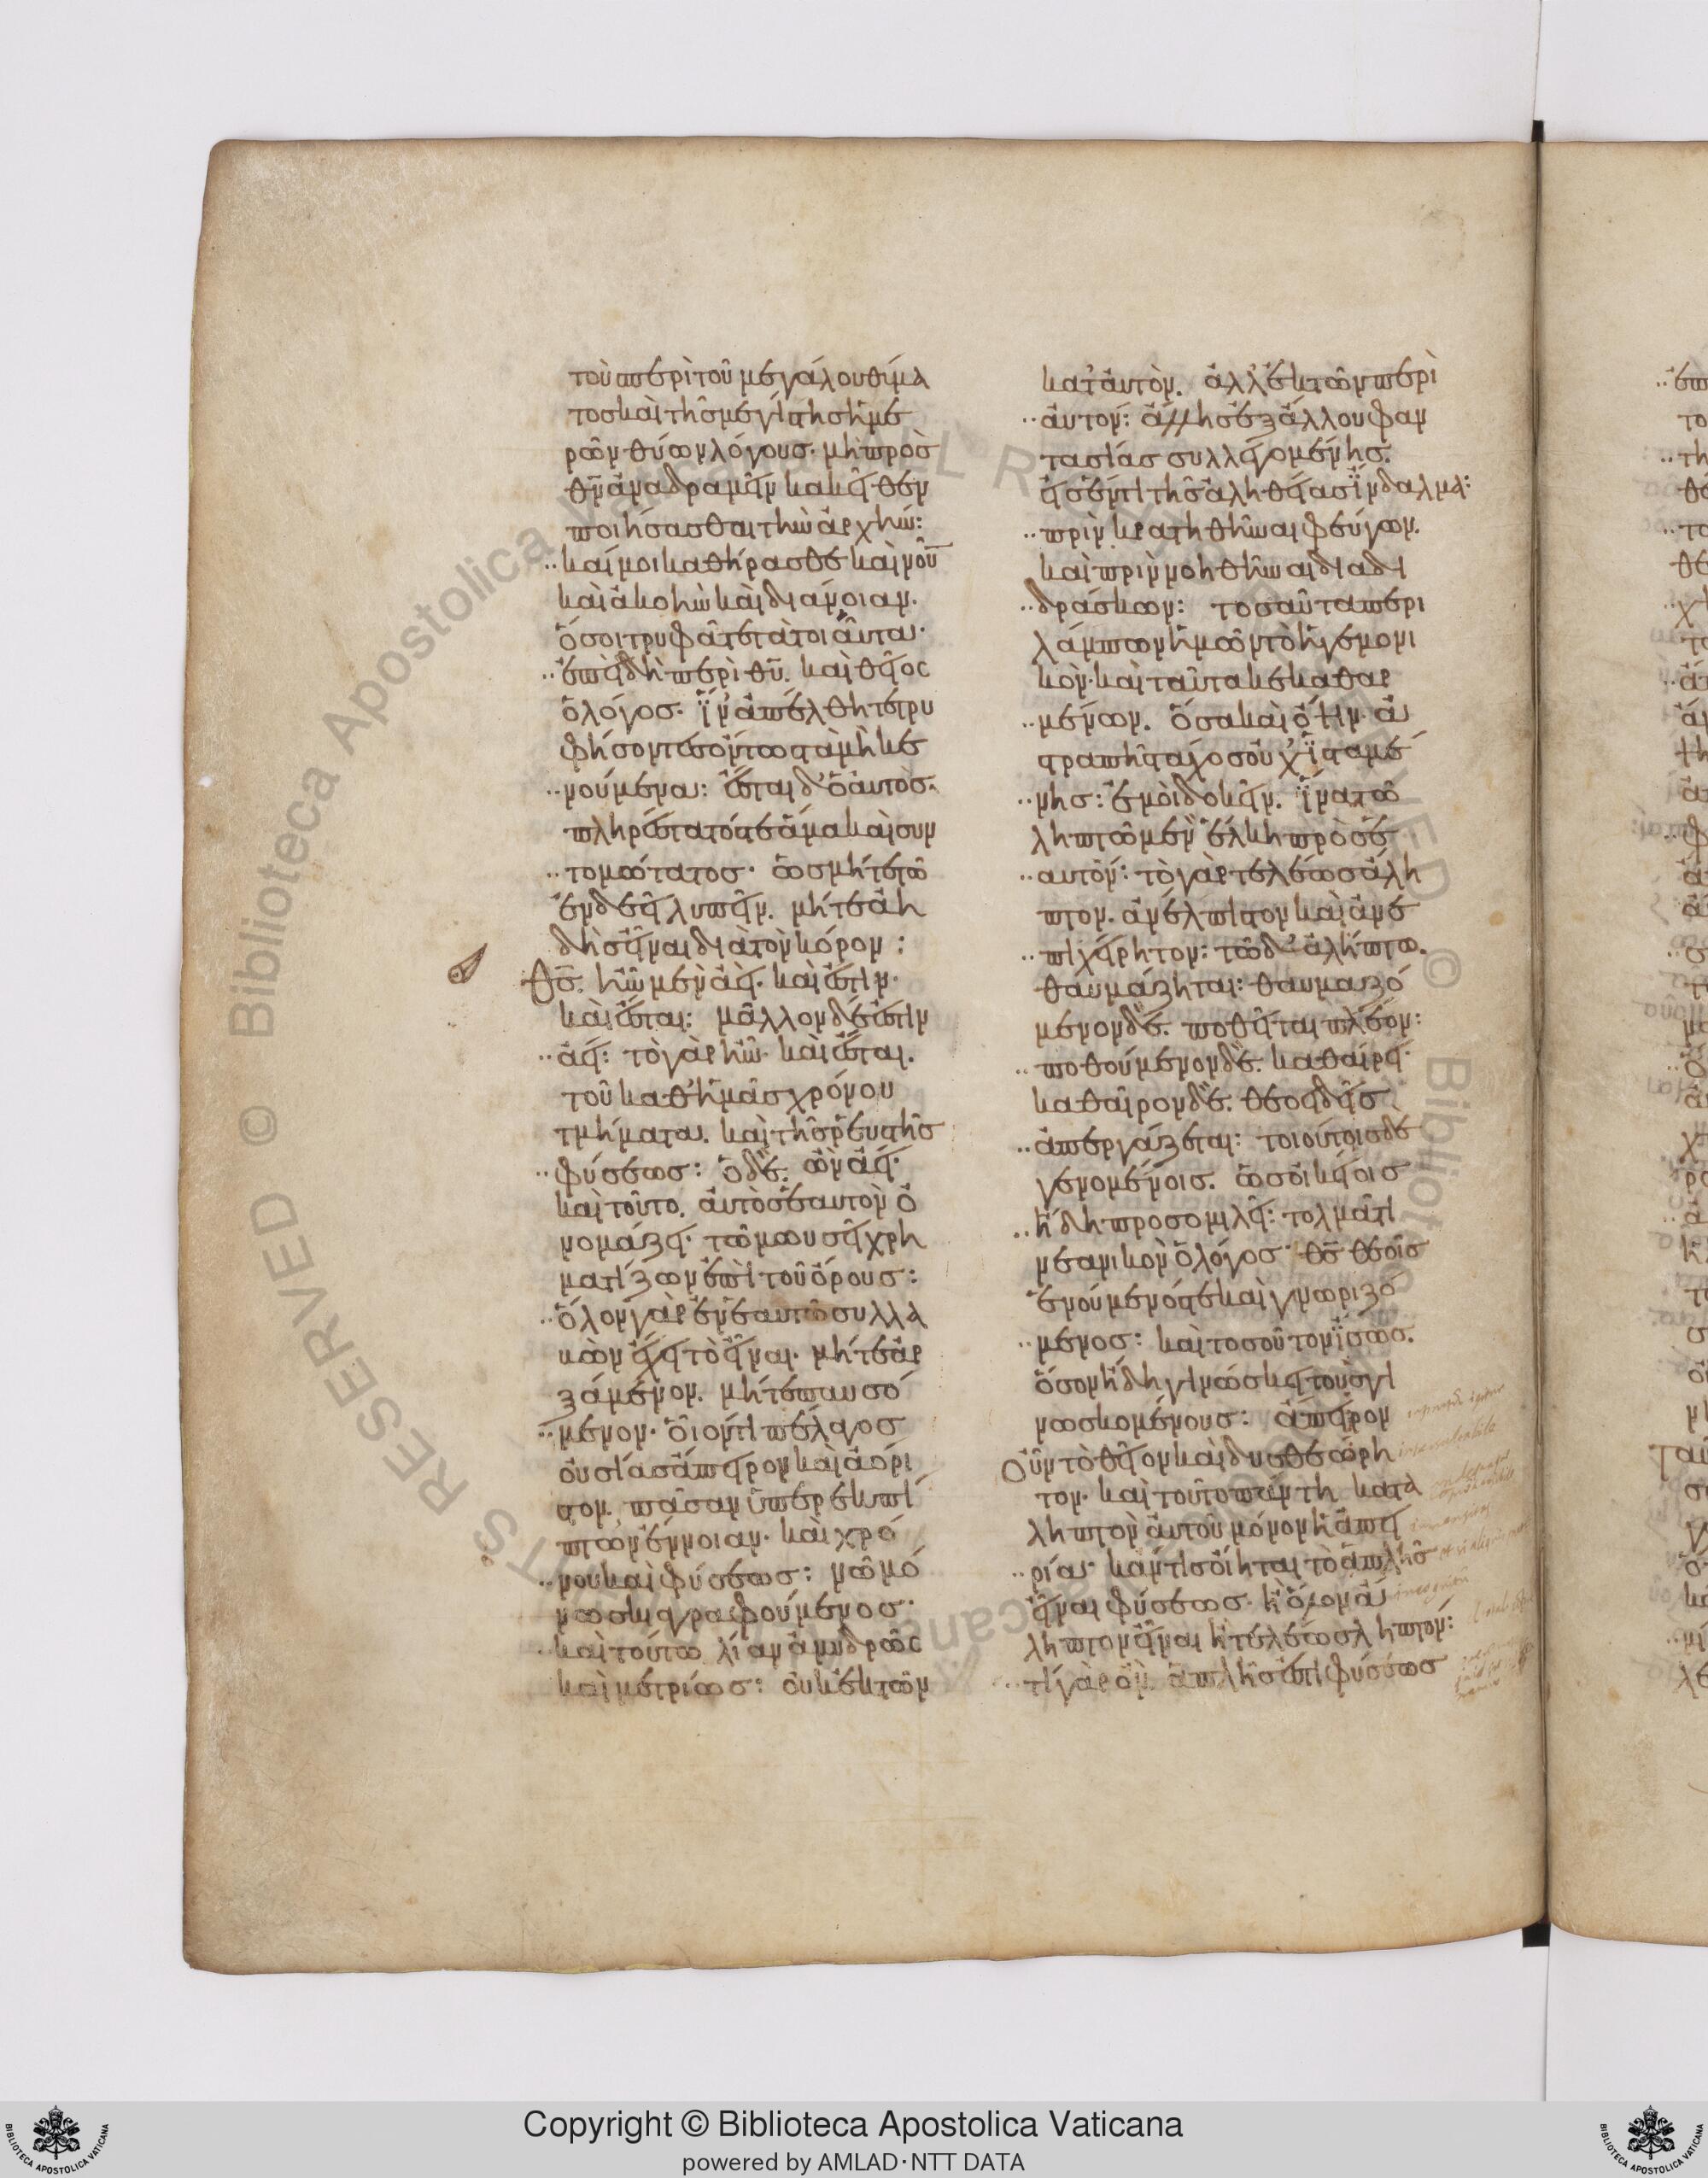 τοὺσ περὶ τοῦ μεγάλου θύμα
τος καὶ τῆς μεγίστης ἡμε
ρῶν θύων λόγους· μὴ πρὸς
θν̄ ἀναδραμεῖν κἀκεῖθεν
ποιήσασθαι τὴν ἀρχήν:
καί μοι καθήρασθε καὶ νοῦν
καὶ ἀκοὴν καὶ διάνοιαν·
ὅσοι τρυφᾶτε τὰ τοιαῦτα·
ἐπειδὴ περὶ θῡ. καὶ θεῖος
ὁ λόγος· ἵν' ἀπέλθητε τρυ
φήσοντες ὄντως τὰ μὴ κε
νούμενα: ἔσται δ' ὁ αὐτὸς·
πληρέστατός τε ἅμα καὶ συν
τομώτατος· ὡς μήτε τῶ
ἐνδεεῖ λυπεῖν. μήτε ἀη
δὴς εἶναι διὰ τὸν κόρον:
Θς̄. ἦν μὲν ἀεὶ· καὶ ἔστιν·
καὶ ἔσται: μᾶλλον δὲ ἔστιν
ἀεί: τὸ γὰρ ἦν· καὶ ἔσται.
τοῦ καθ' ἡμᾶς χρόνου
τμήματα. καὶ τῆς ῥευστῆς
φύσεως: ὁ δὲ. ὢν ἀεί·
καὶ τοῦτο. αὐτὸς ἑαυτὸν ὀ
νομάζει· τῶ μωυσεῖ χρη
ματίζων ἐπὶ τοῦ ὄρους:
ὅλον γὰρ ἐν ἑαυτῶ συλλα
βὼν ἔχει τὸ εἶναι· μήτε ἀρ
ξάμενον. μήτε παυσό
μενον· οἷόν τι πέλαγος
οὐσίας ἄπειρον καὶ ἀόρι
στον. πᾶσαν ὑπερεκπί
πτων ἔννοιαν· καὶ χρό
νου καὶ φύσεως: νῶ μό
νω σκιαγραφούμενος·
καὶ τούτω λίαν ἀμυδρῶς
καὶ μετρίως: οὐκ ἐκ τῶν
κατ' αὐτὸν. ἀλλ' ἐκ τῶν περὶ
αὐτόν: ἄλλης ἐξ ἄλλου φαν
τασίας συλλεγομένης.
εἰς ἕν τι τῆς ἀληθείας ἴνδαλμα:
πρὶν κρατηθῆναι φεύγων.
καὶ πρὶν νοηθῆναι διαδι
δράσκων: τοσαῦτα περι
λάμπων ἡμῶν τὸ ἡγεμονι
κὸν· καὶ ταῦτα κεκαθαρ
μένων. ὅσα καὶ ὄψιν· ἀ
στραπῆς τάχος οὐχ' ἱσταμέ
νης: ἐμοὶ δοκεῖν. ἵνα τῶ
ληπτῶ μὲν ἕλκη πρὸς ἑ
αυτόν: τὸ γὰρ τελέως ἄλη
πτον. ἀνέλπιστον καὶ ἀνε
πιχείρητον: τῶ δὲ ἀλήπτω.
θαυμάζηται: θαυμαζό
μενον δὲ. ποθεῖται πλέον:
ποθούμενον δὲ. καθαίρει·
καθαῖρον δὲ. θεοειδεῖς
ἀπεργάζεται: τοιούτοις δὲ
γενομένοις. ὡς οἰκείοις
ἤδη προσομιλεῖ: τολμᾶ τι
νεανικὸν ὁ λόγος· θς̄ θεοῖς
ἑνούμενός τε καὶ γνωριζό
μενος: καὶ τοσοῦτον ἴσως.
ὅσον ἤδη γινώσκει τοὺς γι
νωσκομένους: ἄπειρον
οὖν τὸ θεῖον καὶ δυσθεώρη
τον· καὶ τοῦτο πάντη κατα
ληπτὸν αὐτοῦ μόνον ἡ ἀπει
ρία· κἄν τις οἴηται τὸ ἁπλῆς
εἶναι φύσεως· ἢ ὅλον ἄ
ληπτον εἶναι ἢ τελέως ληπτόν:
τί γὰρ ὂν. ἁπλῆς ἐστὶ φύσεως